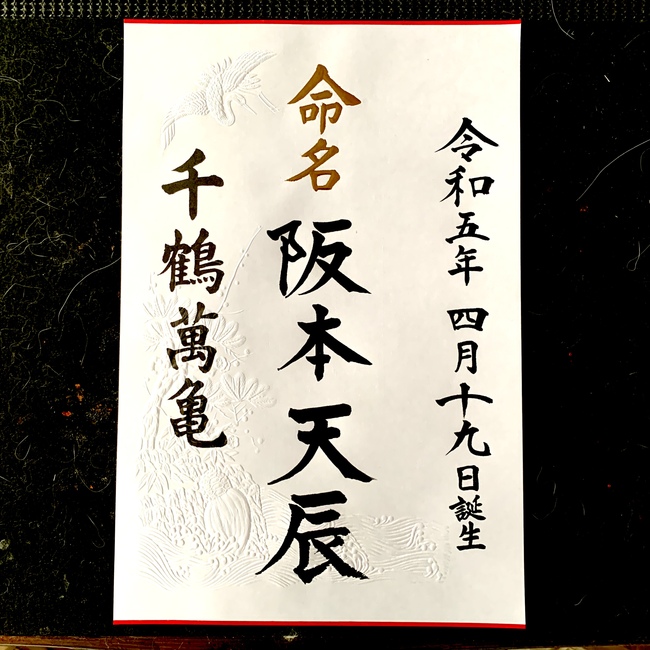 令和五年 四月十九日誕生
命名
阪本天辰
千鶴萬亀